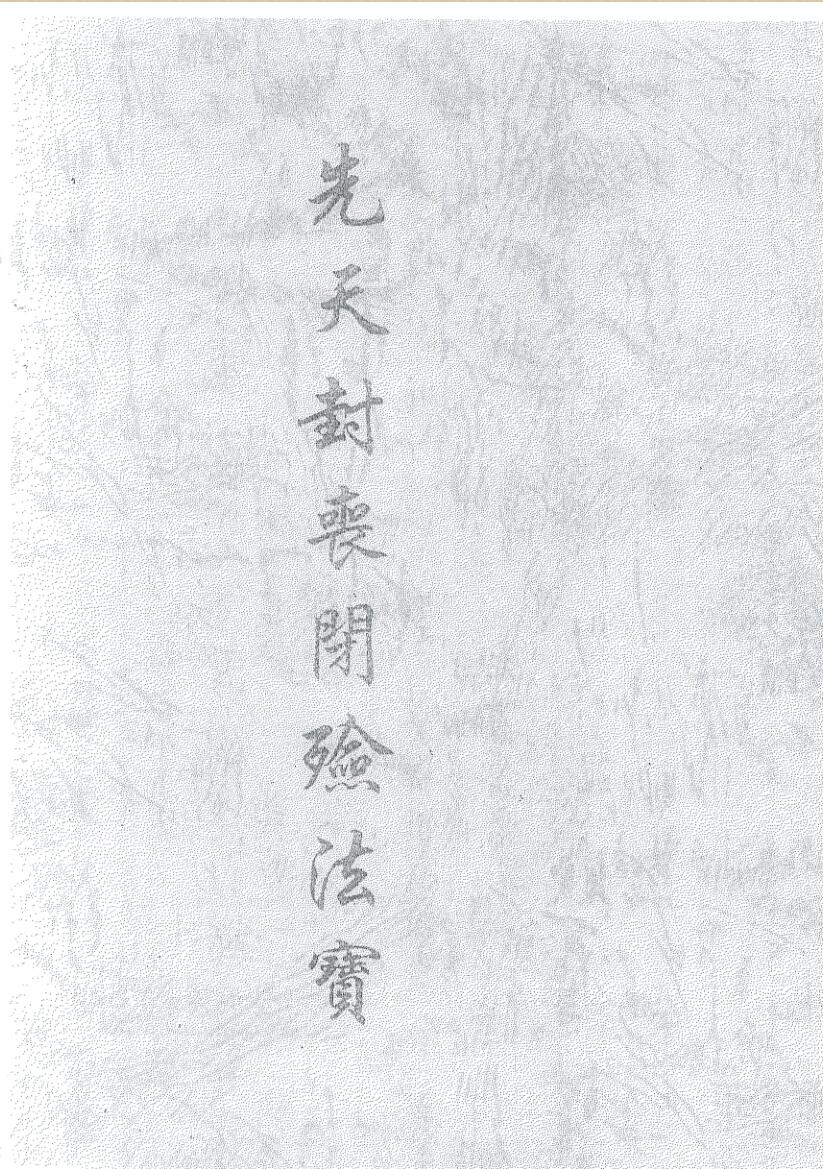 先天封喪閉殮法寶